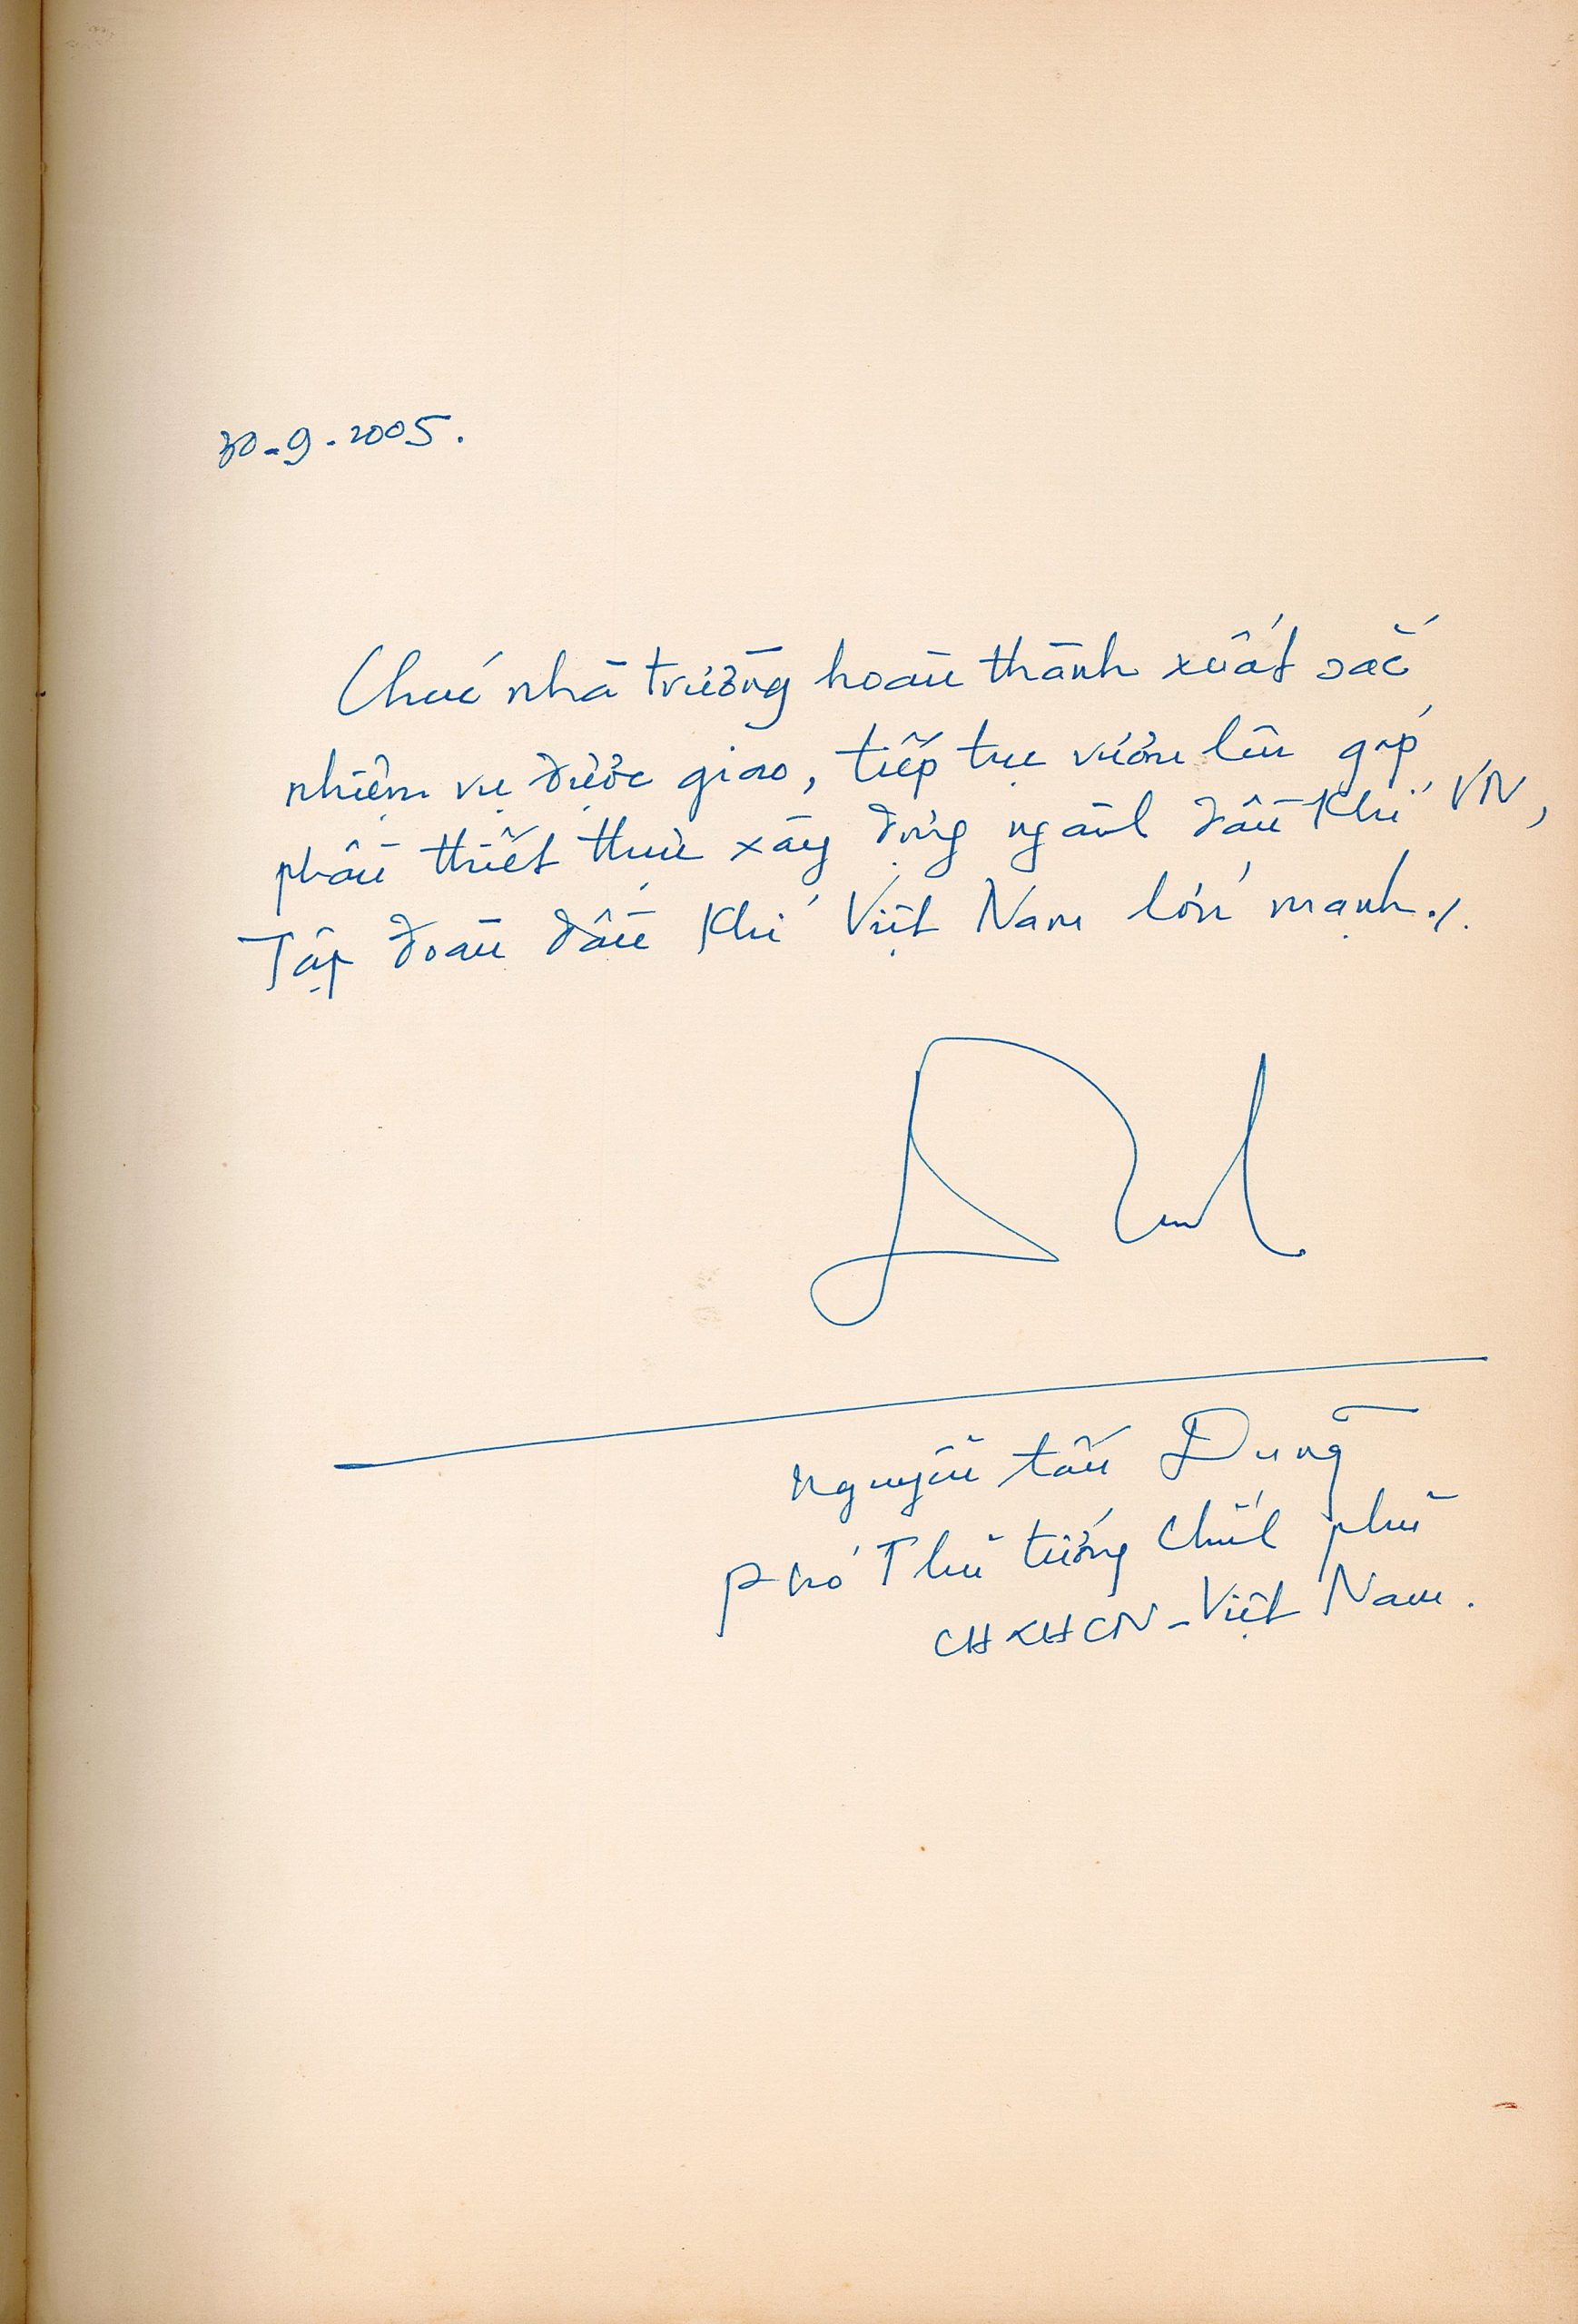 30-9-2005.
Chúc nhà trường hoàn thành xuất sắc
nhiệm vụ được giao, tiếp tục vươn lên góp
phần thiết thực xây dựng ngành dầu khí VN,
Tập đoàn dầu khí Việt Nam lớn mạnh./.
Nguyễn tấn Dũng
Phó Thủ tướng Chính phủ
CHXHCN-Việt Nam.